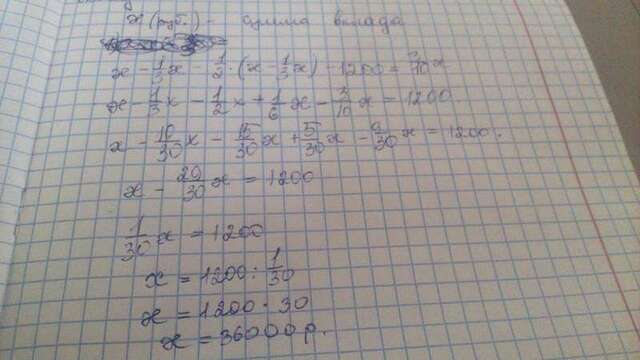 x (руб.) - сумма вклада
x - 1/3 x - 1/2 · (x - 1/3 x) - 1200 = 3/10 x
x - 1/3 x - 1/2 x + 1/6 x - 3/10 x = 1200.
x - 10/30 x - 15/30 x + 5/30 x - 9/30 x = 1200.
x - 29/30 x = 1200
1/30 x = 1200
x = 1200 : 1/30
x = 1200 · 30
x = 36000 р.